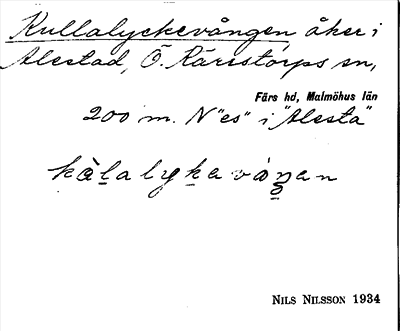 Kullalyckevången åker i
Alestad, Ö. Kärrstorps sn,
Färs hd, Malmöhus län
200 m. N "es" i "Alesta"
kàlalykavåŋan
NILS NILSSON 1934